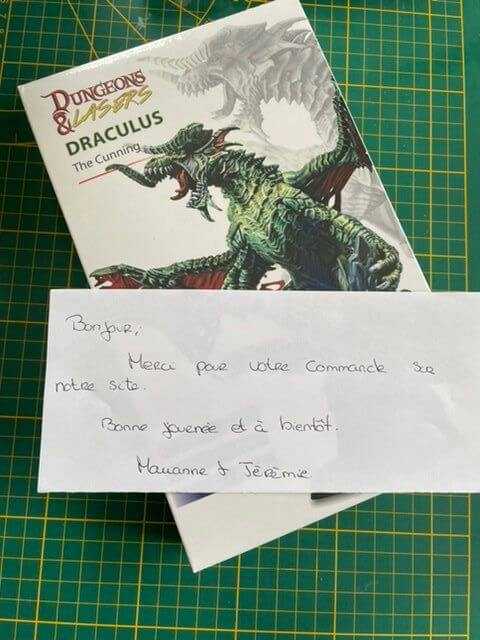 DUNGEONS
& LASERS
DRACULUS
The Cunning
Bonjour,
Merci pour votre commande sur
notre site.
Bonne journée et à bientôt.
Marianne & Jérémie